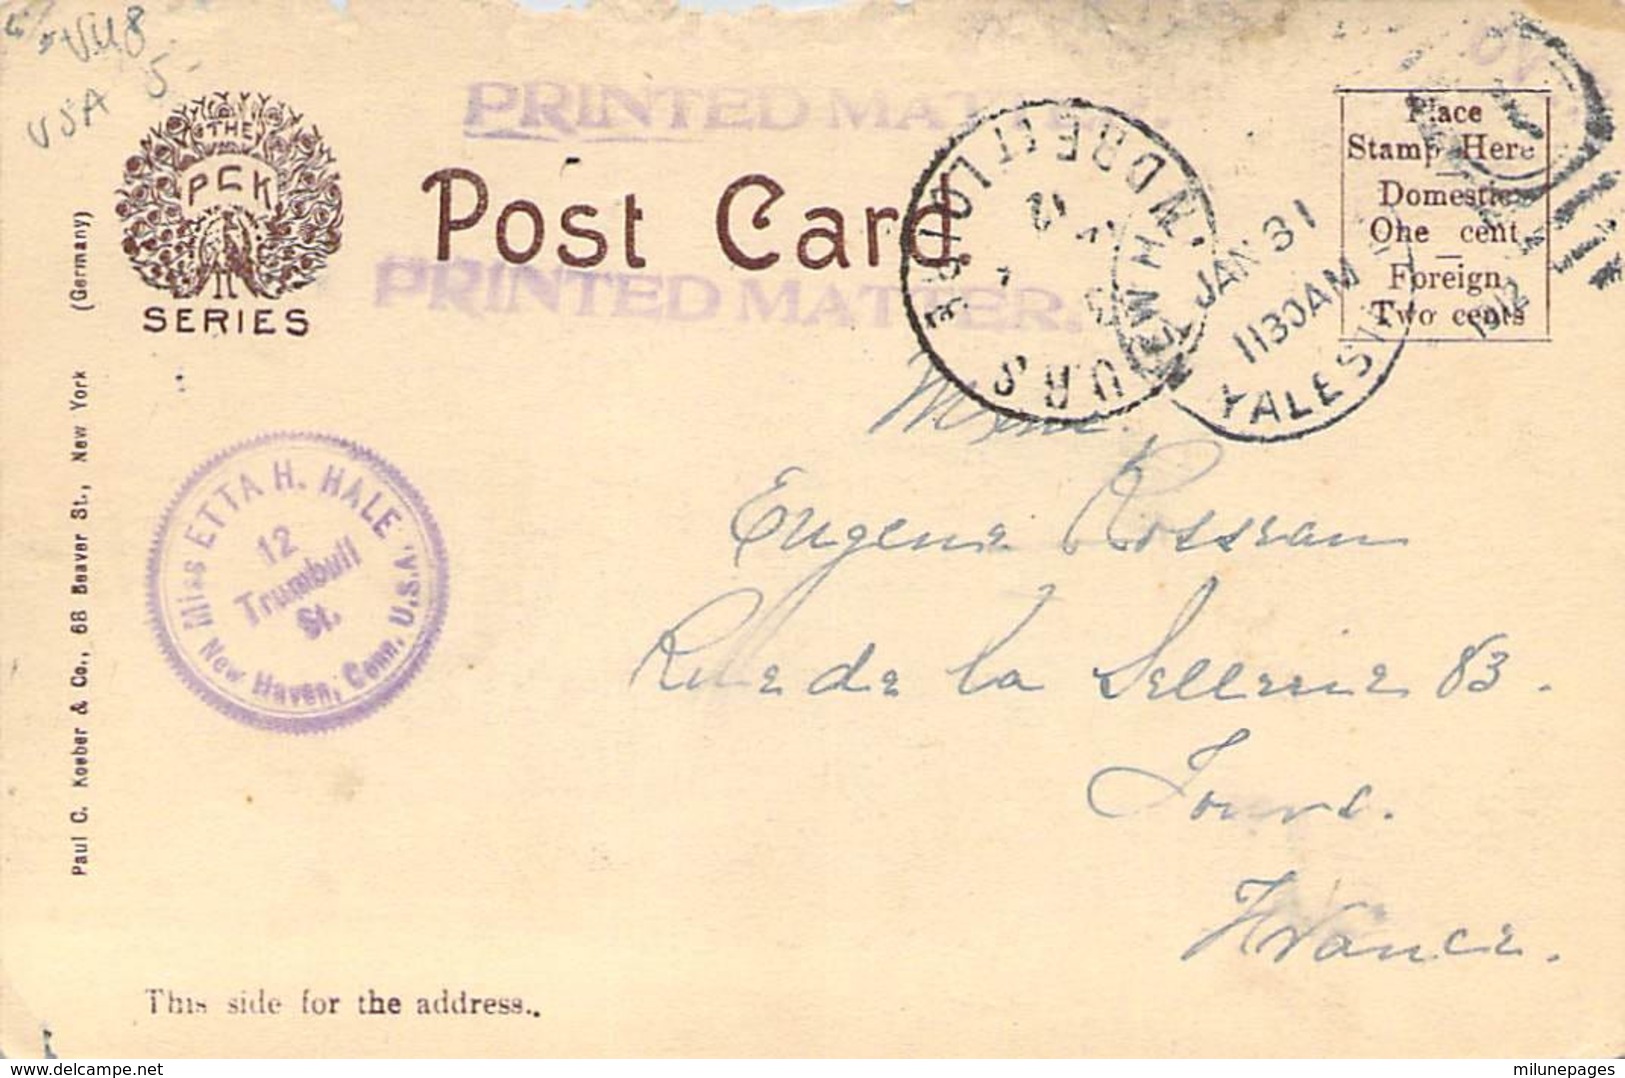 VM8
5
USA
THE
PCK
SERIES
PRINTED MATTER.
Post Card
PRINTED MATTER.
Place
Stamp Here
Domestic
One cent
Foreign
Two cents
JAN 31
1130AM
1912
YALES
INDRE ET LOIRE
12
Paul C. Koeber & Co., 68 Beaver St., New York (Germany)
Miss ETTA H. HALE
12
Trumbull
St.
New Haven, Conn. U.S.A.
Mme.
Eugene Rossean
Rue de la Sellerie 83.
Tours.
France.
This side for the address..
www.delcampe.net
milunepages